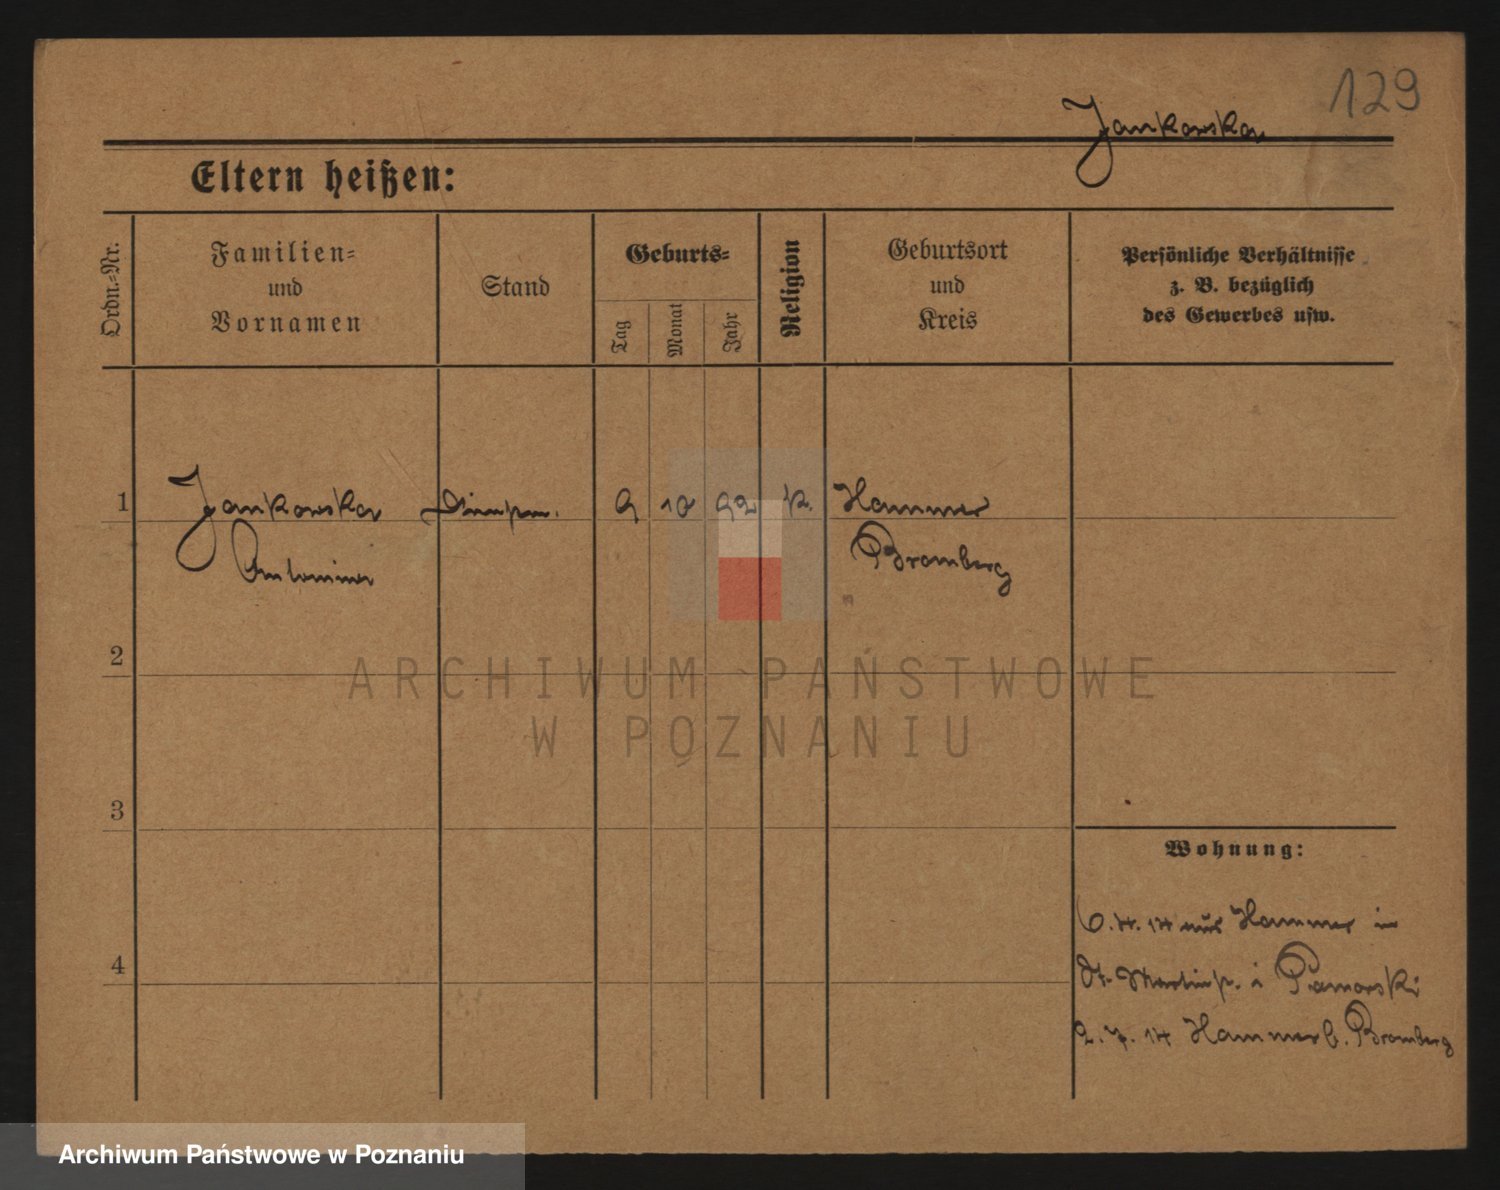 129
Jankowska
Eltern heißen:
Ordn.-Nr.
Familien-
und
Vornamen
Stand
Geburts-
Tag
Monat
Jahr
Religion
Geburtsort
und
Kreis
Persönliche Verhältnisse
z. B. bezüglich
des Gewerbes usw.
1 Jankowska 9 10 92 k. Hammer
Antonina Bromberg
2
3
4
Wohnung:
6.4.14 aus Hammer in
St. Martinstr. i
2.7.14 Hammer b. Bromberg
ARCHIWUM PAŃSTWOWE
W POZNANIU
Archiwum Państwowe w Poznaniu